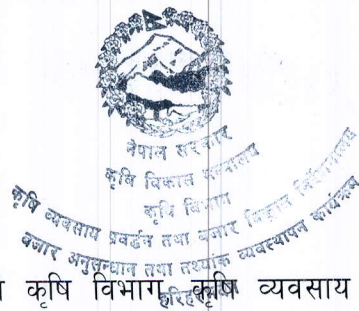 नेपाल सरकार
कृषि विकास मन्त्रालय
कृषि विभाग
कृषि व्यवसाय प्रवर्द्धन तथा बजार विकास निर्देशनालय
बजार अनुसन्धान तथा तथ्यांक व्यवस्थापन कार्यक्रम
हरिहरभवन
कृषि विभाग कृषि व्यवसाय